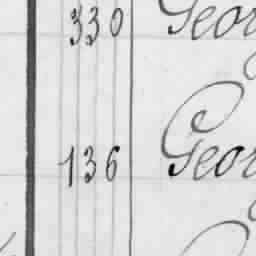 330 Geor
136 Geor